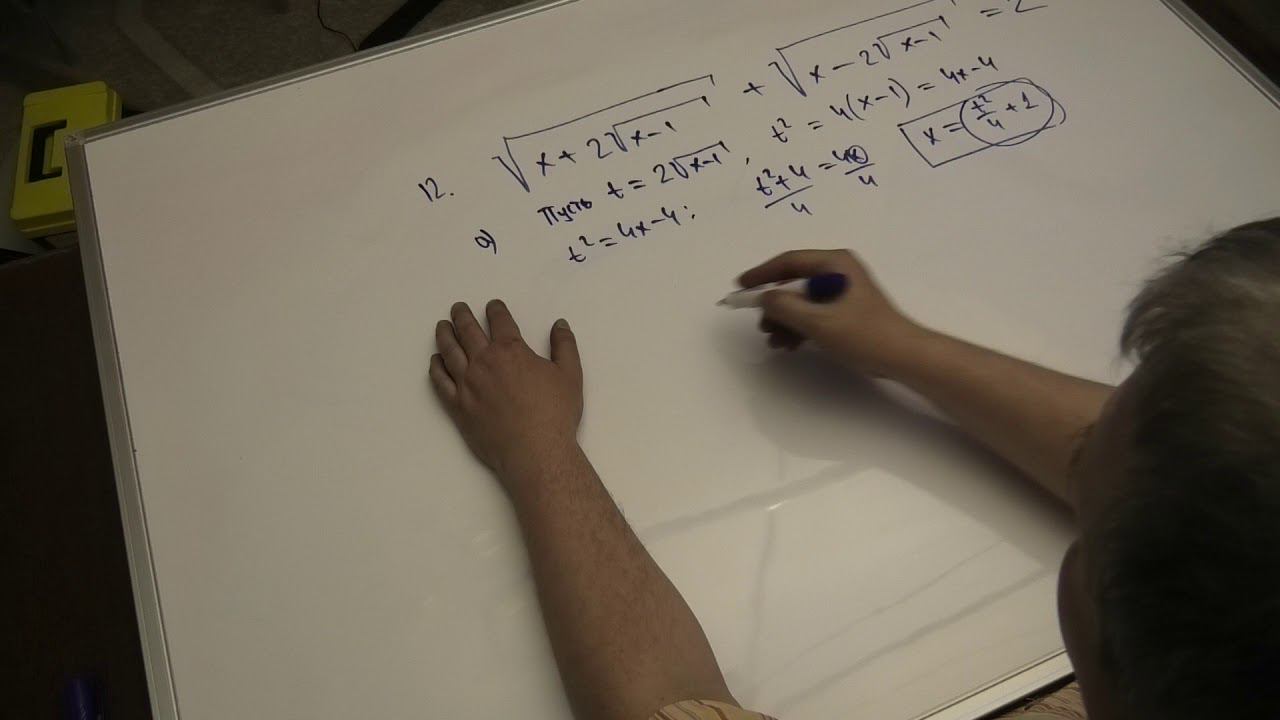 12. √(x + 2√(x-1)) + √(x - 2√(x-1)) = 2
a) Пусть t = 2√(x-1), t² = 4(x-1) = 4x-4
t² = 4x-4: (t²+4)/4 = 4x/4 x = t²/4 + 1